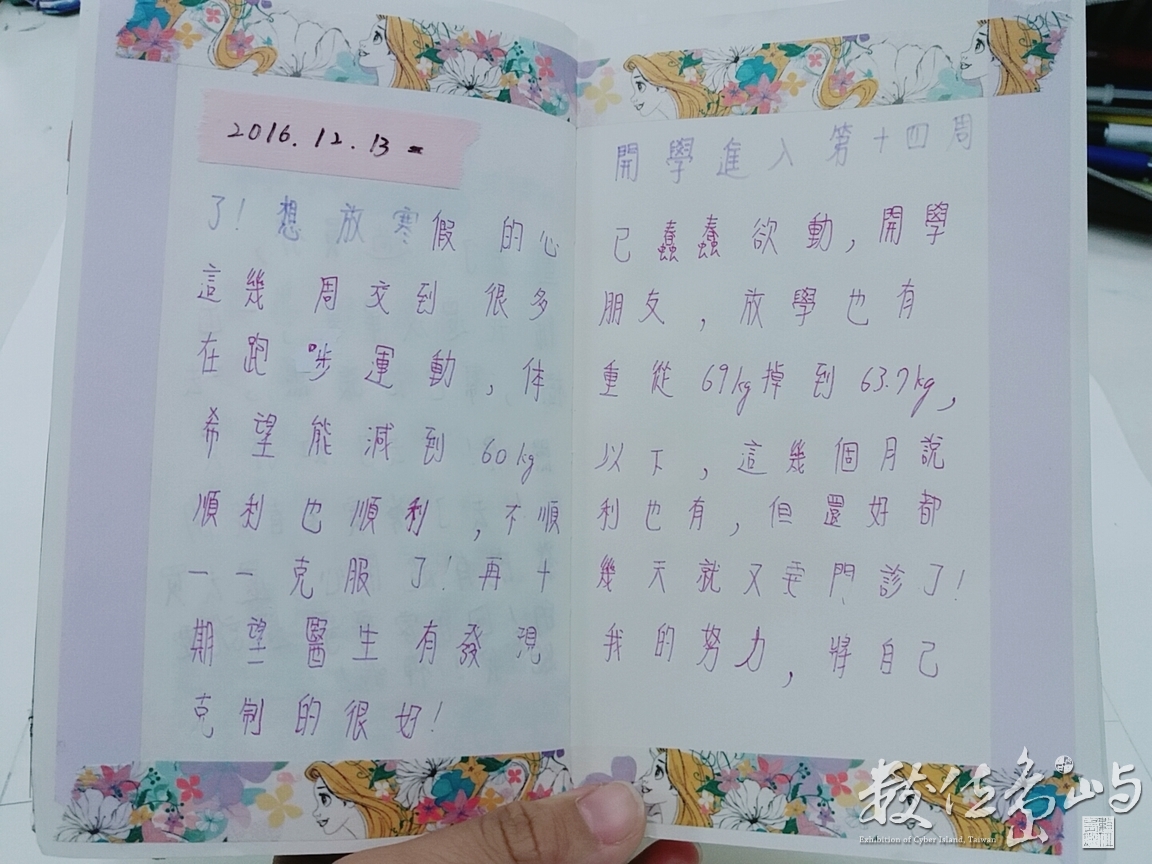 2016.12.13 二
開學進入第十四周
了！想放寒假的心
已蠢蠢欲動，開學
這幾周交到很多
朋友，放學也有
在跑步運動，体
重從69kg掉到63.7kg，
希望能減到60kg
以下，這幾個月說
順利也順利，不順
利也有，但還好都
一一克服了！再十
幾天就又要門診了！
期望醫生有發現
我的努力，將自己
克制的很好！
數位島嶼
Exhibition of Cyber Island, Taiwan